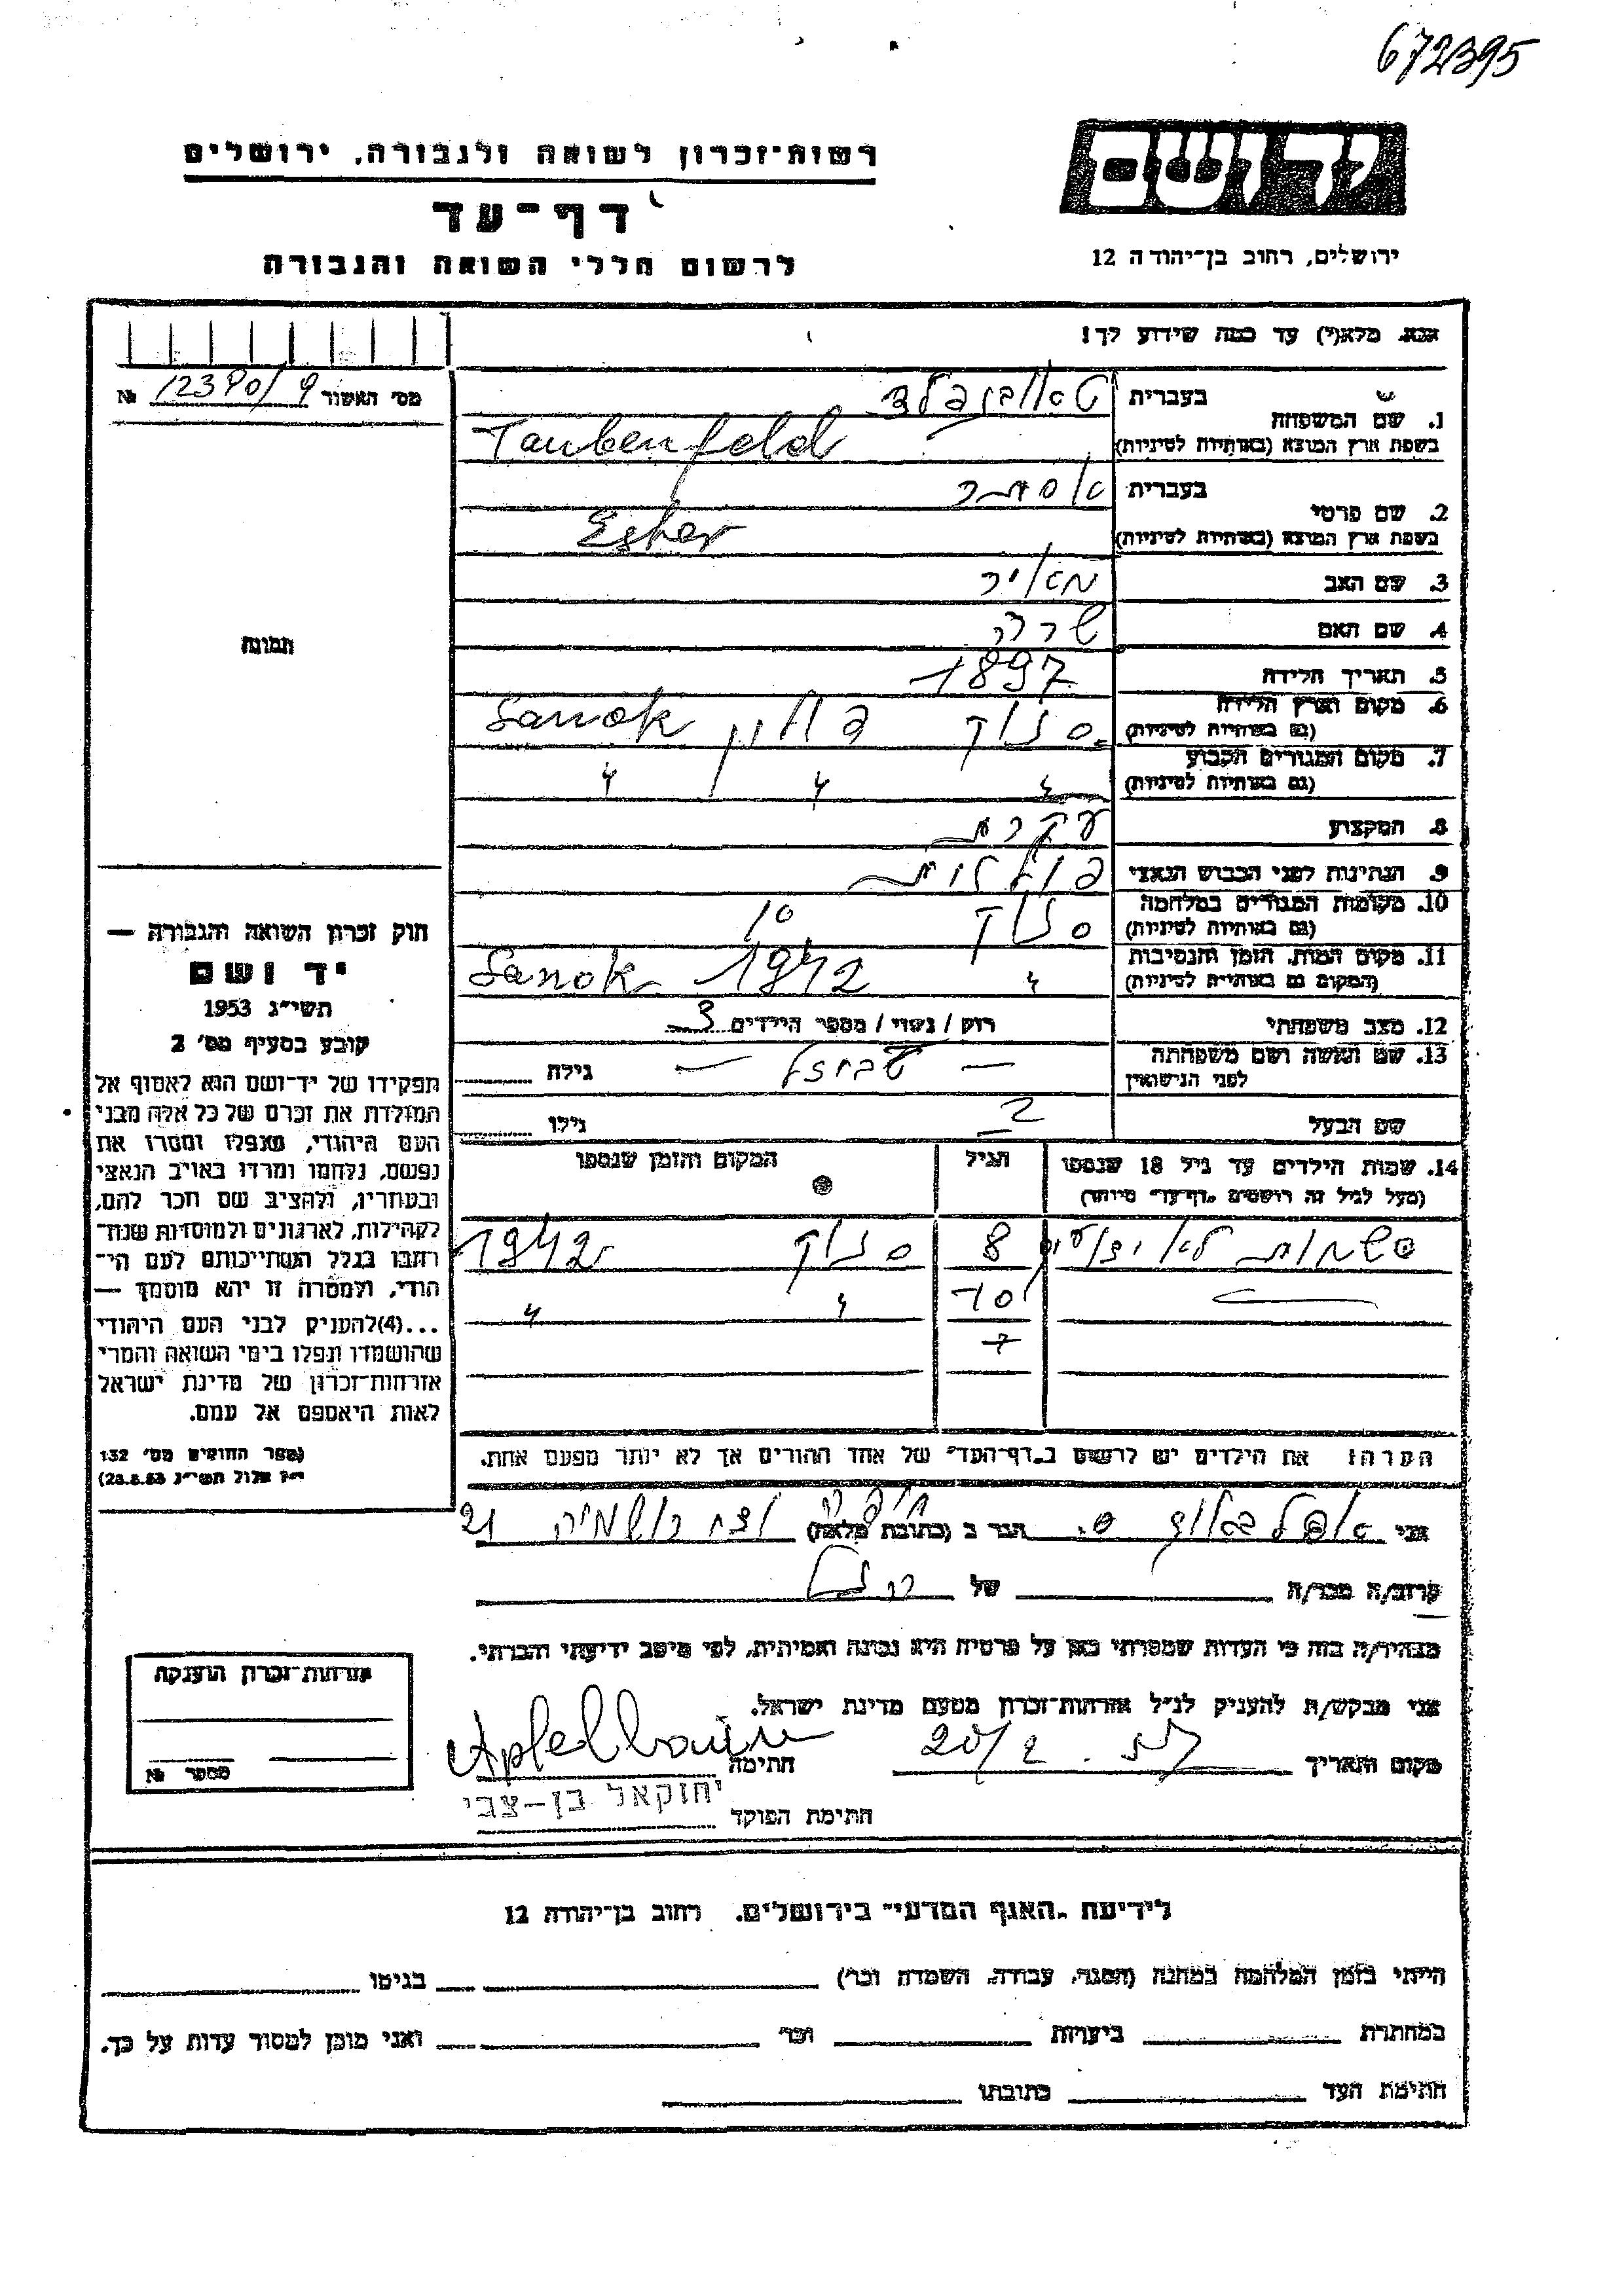 672395
רשות-זכרון לשואה ולגבורה, ירושלים
דף-עד
לרשום חללי השואה והגבורה
יד ושם
ירושלים, רחוב בן-יהודה 12
אנא, מלא(י) עד כמה שידוע לך!
מס' האשור 12390/9 №
1. שם המשפחה
בעברית טאובנפלד
בשפת ארץ המוצא (באותיות לטיניות) Taubenfeld
2. שם פרטי
בעברית אסתר
בשפת ארץ המוצא (באותיות לטיניות) Ester
3. שם האב מאיר
4. שם האם שרה
5. תאריך הלידה 1897
6. מקום וארץ הלידה
(גם באותיות לטיניות) סנוק פולין Sanok
7. מקום המגורים הקבוע
(גם באותיות לטיניות) " " "
8. המקצוע עקרת
9. הנתינות לפני הכבוש הנאצי פולנית
10. מקומות המגורים במלחמה
(גם באותיות לטיניות) סנוק
11. מקום המות, הזמן והנסיבות
(המקום גם באותיות לטיניות) " 1942 Sanok
12. מצב משפחתי רווק / נשוי / מספר הילדים 3
13. שם האשה ושם משפחתה
לפני הנישואין — — גילה
שם הבעל גילו
14. שמות הילדים עד גיל 18 שנספו
(מעל לגיל זה רושמים "דף-עד" מיוחד)
הגיל
המקום והזמן שנספו
שמות לא 8 סנוק 1942
10 " "
7
הערה: את הילדים יש לרשום ב"דף-העד" של אחד ההורים אך לא יותר מפעם אחת.
תמונה
חוק זכרון השואה והגבורה —
יד ושם
תשי"ג 1953
קובע בסעיף מס' 2
תפקידו של יד-ושם הוא לאסוף אל
המולדת את זכרם של כל אלה מבני
העם היהודי, שנפלו ומסרו את
נפשם, נלחמו ומרדו באויב הנאצי
ובעוזריו, ולהציב שם וזכר להם,
לקהילות, לארגונים ולמוסדות שנח-
רבו בגלל השתייכותם לעם הי-
הודי, ולמטרה זו יהא מוסמך —
...(4) להעניק לבני העם היהודי
שהושמדו ונפלו בימי השואה והמרי
אזרחות-זכרון של מדינת ישראל
לאות היאספם אל עמם.
(ספר החוקים מס' 132
י"ז אלול תשי"ג 28.8.53)
אני אפלבוים ש. הגר ב (כתובת מלאה) חיפה 21
קרוב/ה מכר/ה של
מצהיר/ה בזה כי העדות שמסרתי כאן על פרטיה היא נכונה ואמיתית, לפי מיטב ידיעתי והכרתי.
אני מבקש/ת להעניק לנ"ל אזרחות-זכרון מטעם מדינת ישראל.
מקום ותאריך 20/2. חתימה Apfelbaum
חתימת הפוקד יחזקאל בן-צבי
אזרחות-זכרון הוענקה
מספר №
לידיעת "האגף המדעי" בירושלים. רחוב בן-יהודה 12
הייתי בזמן המלחמה במחנה (הסגר, עבודה, השמדה וכו') בגיטו
במחתרת ביערות וכו' ואני מוכן למסור עדות על כך.
חתימת העד כתובתו